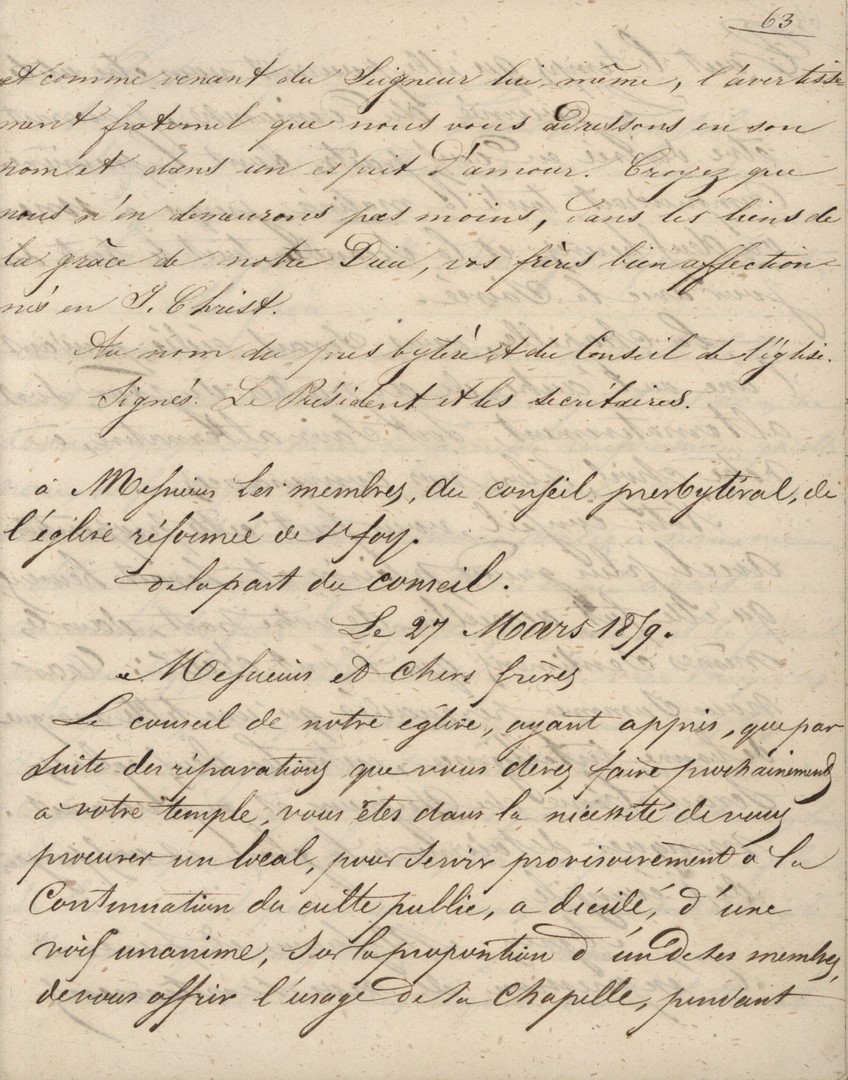 63
et comme venant du Seigneur lui-même, l'avertisse-
ment fraternel que nous vous adressons en son
nom et dans un esprit d'amour. Croyez que
nous n'en demeurons pas moins, dans les liens de
la grâce de notre Dieu, vos frères bien affection-
nés en J. Christ.
Au nom du presbytère et du Conseil de l'église.
Signés. Le Président et les secrétaires.
à Messieurs les membres, du conseil presbytéral, de
l'église réformée de Ste foy.
de la part du conseil.
Le 27 Mars 1859.
Messieurs et Chers frères
Le conseil de notre église, ayant appris, que par
suite des réparations que vous devez faire prochainement
a votre temple, vous êtes dans la nécessité de vous
procurer un local, pour servir provisoirement à la
Continuation du culte public, a décidé, d'une
voix unanime, sur la proposition d'un de ses membres,
de vous offrir l'usage de sa Chapelle, pendant